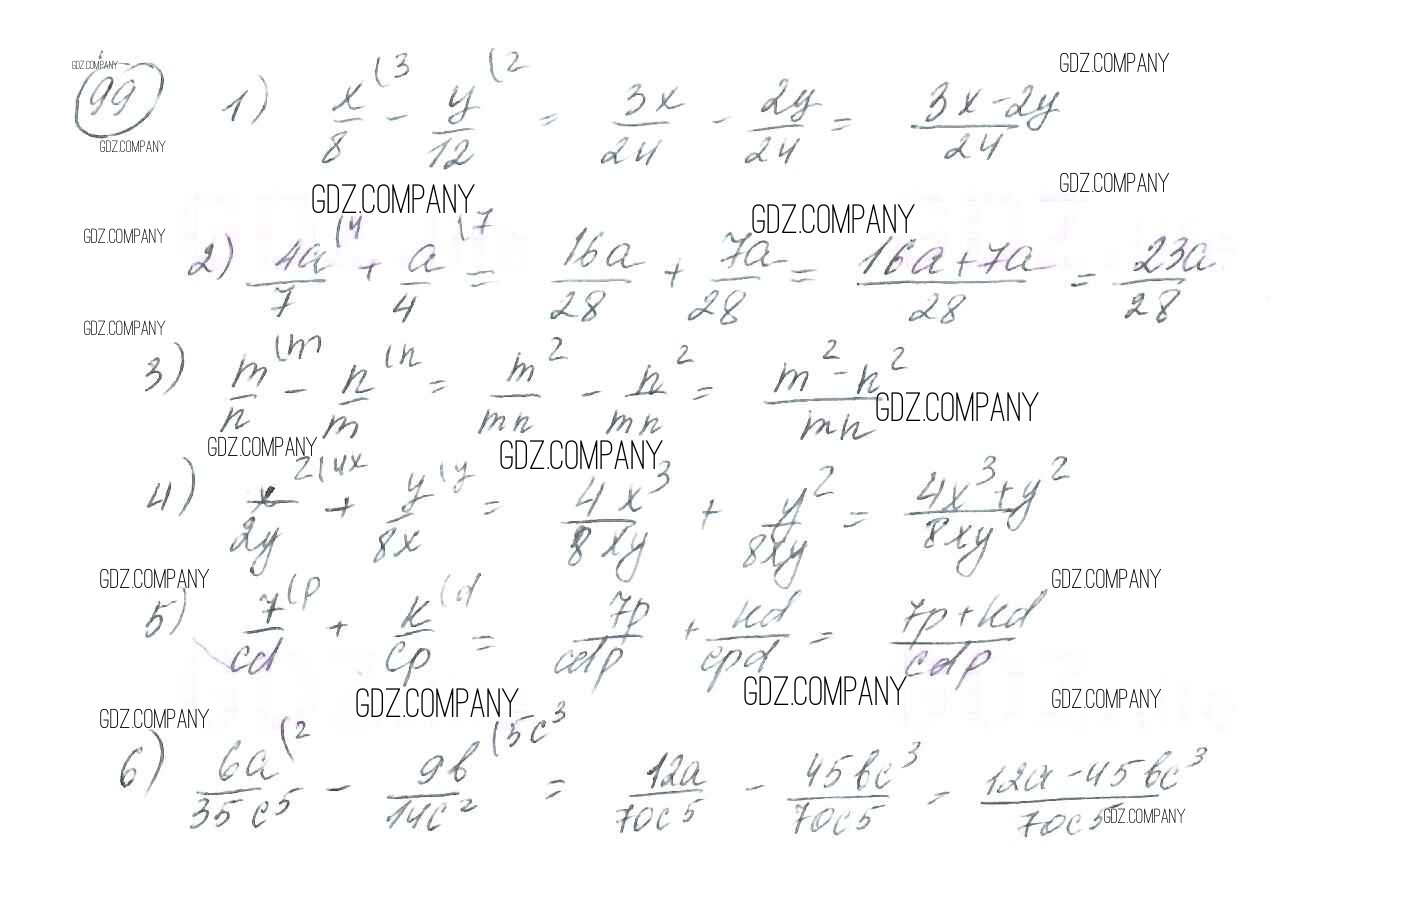 GDZ.COMPANY
99 1) x/8 (3 - y/12 (2 = 3x/24 - 2y/24 = 3x-2y/24 GDZ.COMPANY
GDZ.COMPANY
GDZ.COMPANY GDZ.COMPANY
GDZ.COMPANY GDZ.COMPANY
2) 4a/7 (4 + a/4 (7 = 16a/28 + 7a/28 = 16a+7a/28 = 23a/28
GDZ.COMPANY
3) m/n (m - n/m (n = m²/mn - n²/mn = m²-n²/mn GDZ.COMPANY
GDZ.COMPANY GDZ.COMPANY
4) x²/2y (4x + y/8x (y = 4x³/8xy + y²/8xy = 4x³+y²/8xy
GDZ.COMPANY GDZ.COMPANY
5) 7/cd (p + k/cp (d = 7p/cdp + kd/cpd = 7p+kd/cdp
GDZ.COMPANY GDZ.COMPANY GDZ.COMPANY GDZ.COMPANY
6) 6a/35c⁵ (2 - 9b/14c² (5c³ = 12a/70c⁵ - 45bc³/70c⁵ = 12a-45bc³/70c⁵
GDZ.COMPANY